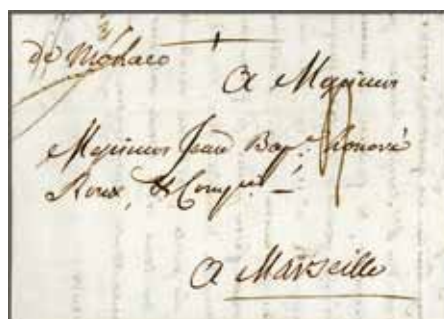 de Monaco
A Messieurs
Messieurs Jean Bap.e honoré
Roux, & Compe
A Marseille